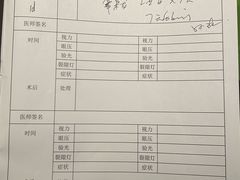 医师签名
时间 视力 视力
眼压 眼压
验光 验光
裂隙灯 裂隙灯
症状 症状
术后 处理
医师签名
时间 视力 视力
眼压 眼压
验光 验光
裂隙灯 裂隙灯
症状 症状